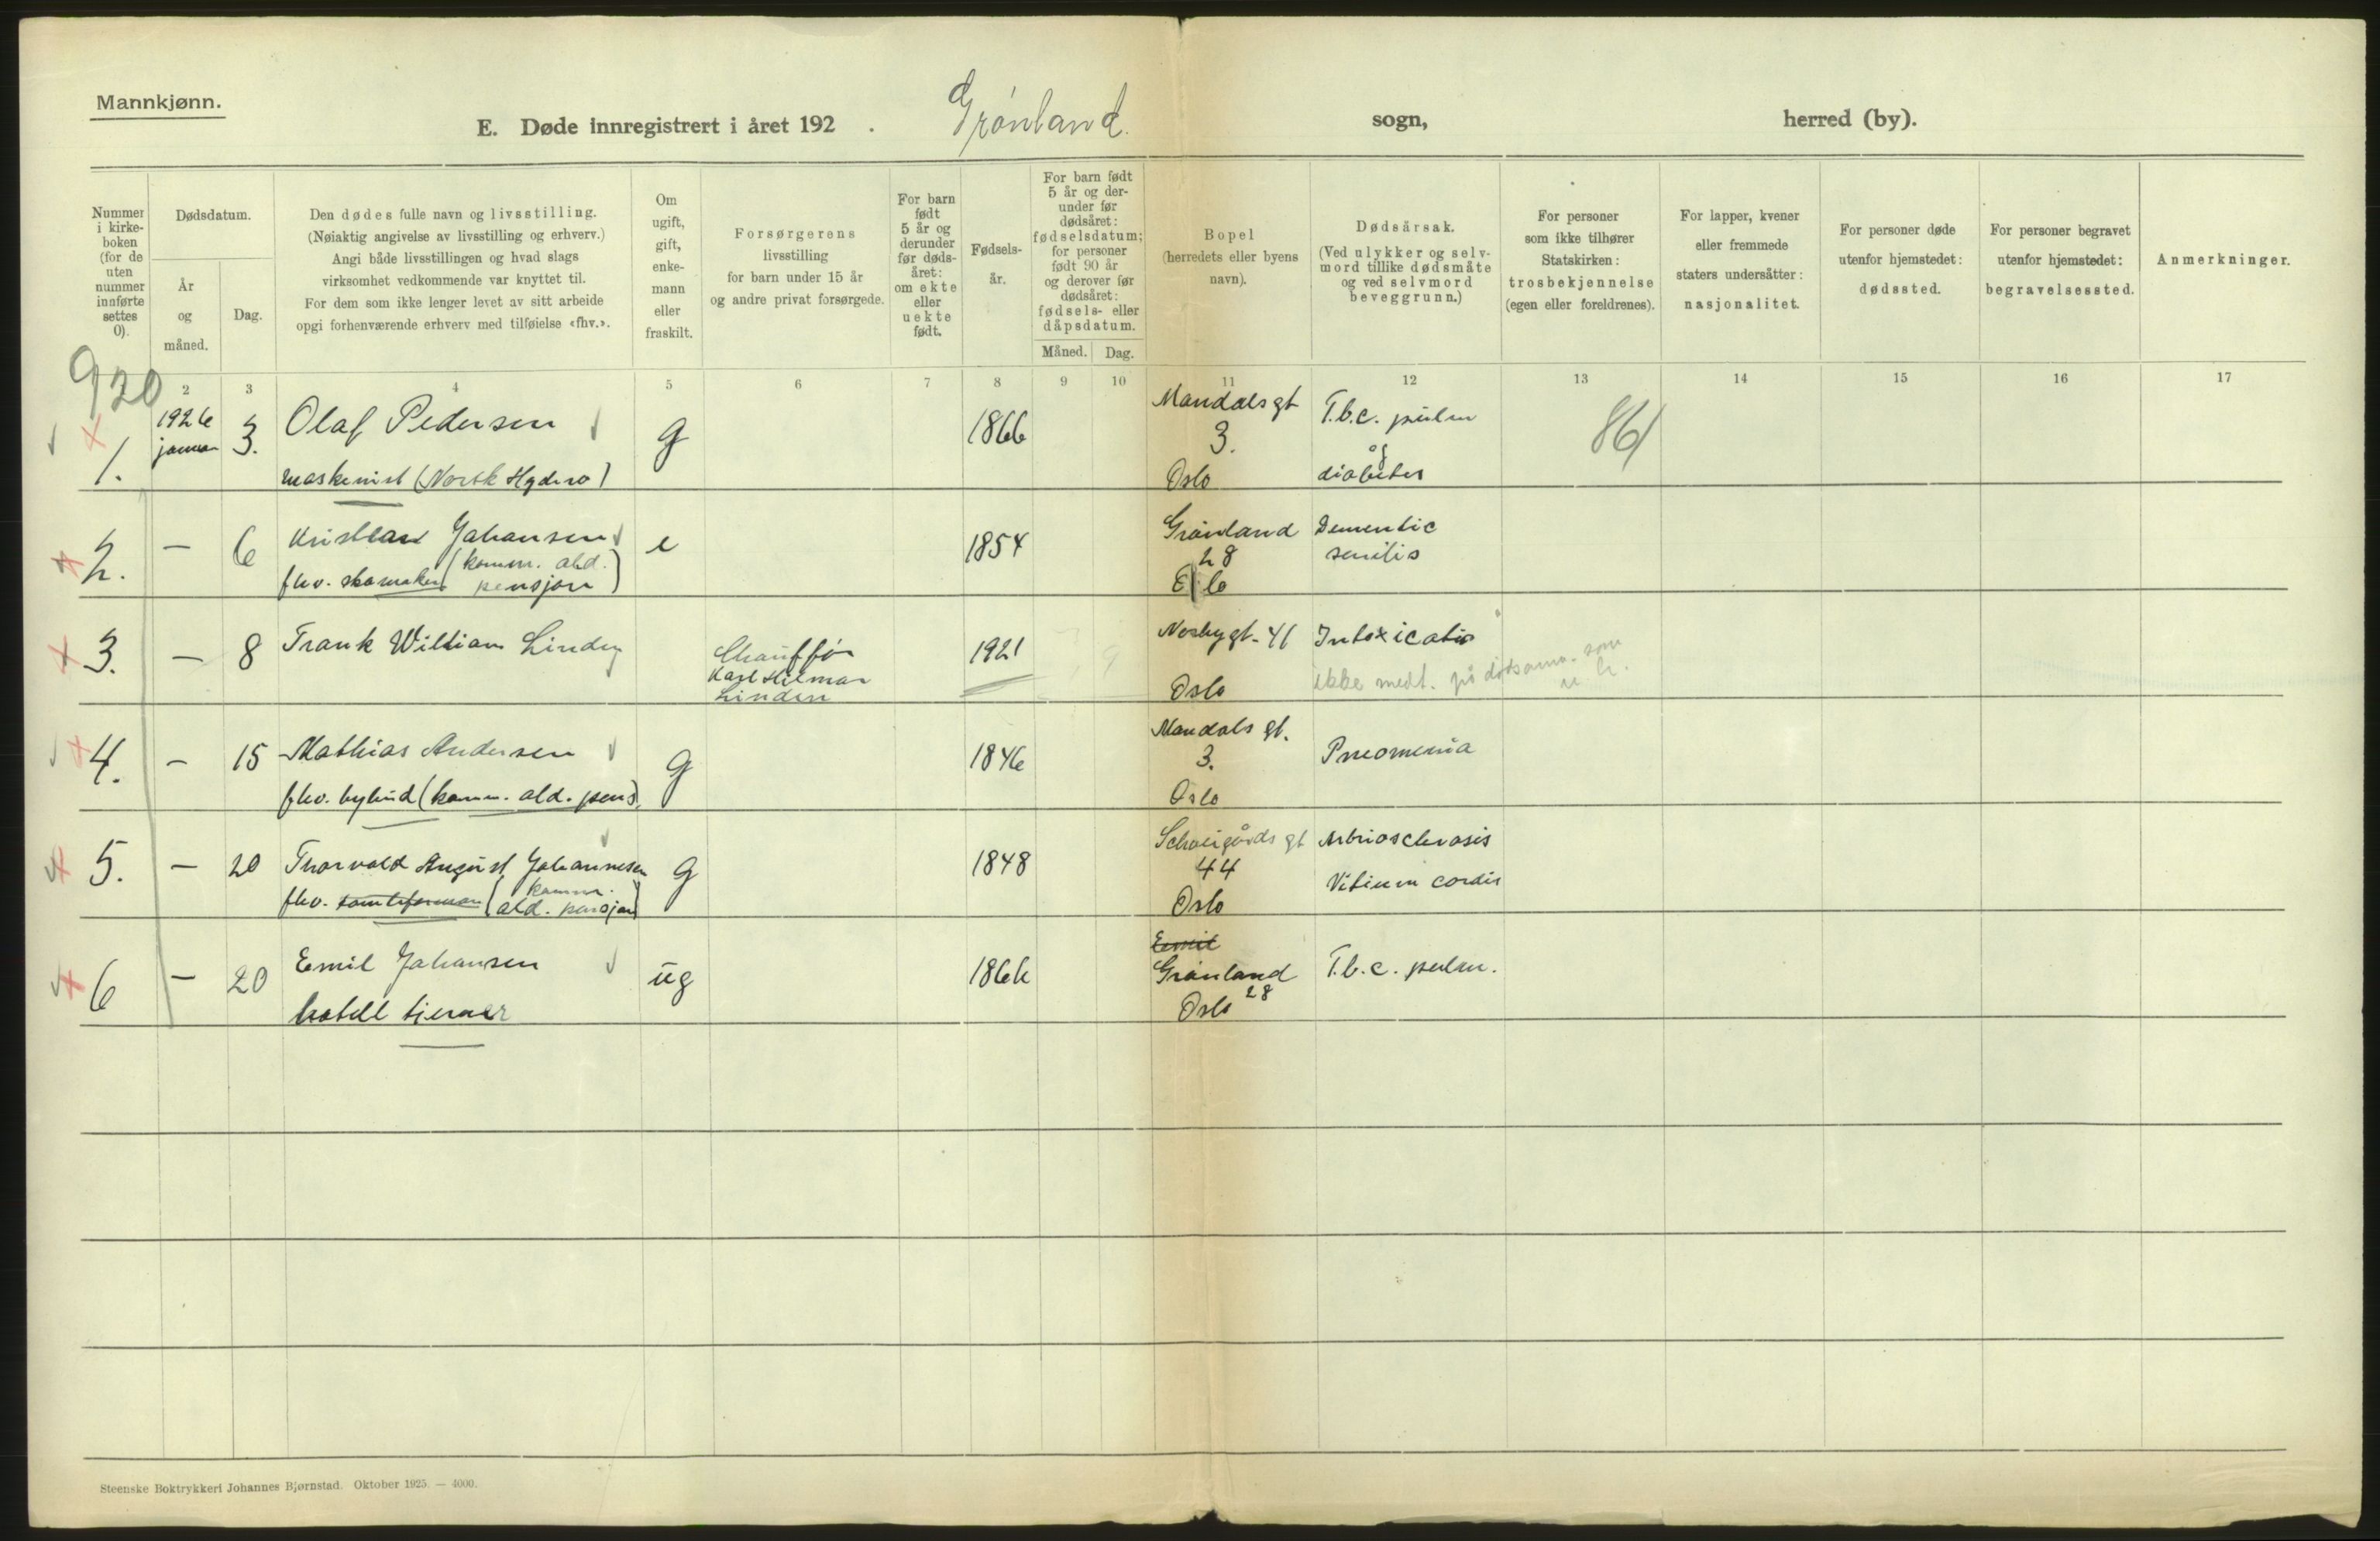 Mannkjønn.
E. Døde innregistrert i året 192 . Grönland. sogn, herred (by).
Nummer i kirke-boken (for de uten nummer innførte settes 0).
Dødsdatum.
År og måned.
Dag.
Den dødes fulle navn og livsstilling.
(Nøiaktig angivelse av livsstilling og erhverv.)
Angi både livsstillingen og hvad slags
virksomhet vedkommende var knyttet til.
For dem som ikke lenger levet av sitt arbeide
opgi forhenværende erhverv med tilføielse «fhv.».
Om ugift, gift, enke-mann eller fraskilt.
Forsørgerens
livsstilling
for barn under 15 år
og andre privat forsørgede.
For barn født 5 år og derunder før døds-året: om ekte eller uekte født.
Fødsels-år.
For barn født 5 år og der-under før dødsåret: fødselsdatum; for personer født 90 år og derover før dødsåret: fødsels- eller dåpsdatum.
Måned. Dag.
Bopel
(herredets eller byens
navn).
Dødsårsak.
(Ved ulykker og selv-
mord tillike dødsmåte
og ved selvmord
beveggrunn.)
For personer
som ikke tilhører
Statskirken:
trosbekjennelse
(egen eller foreldrenes).
For lapper, kvener
eller fremmede
staters undersåtter:
nasjonalitet.
For personer døde
utenfor hjemstedet:
dødssted.
For personer begravet
utenfor hjemstedet:
begravelsessted.
Anmerkninger.
920
2 3 4 5 6 7 8 9 10 11 12 13 14 15 16 17
1. 1926 januar 3. Olaf Pedersen g 1866 Mandalsgt 3. Oslo T.b.c. pulm og diabetes 861
maskinist (Norsk Hydro)
2. — 6 Kristian Johansen e 1854 Grönland 28 Oslo Dementic senilis
fhv. skomaker (komm. ald. pensjon)
3. — 8 Frank William Linden Chaufför Karl Hilmar Linden 1921 Norbygt. 41 Oslo Intoxicatio
ikke medt. på dødsanm. som
4. — 15 Mathias Andersen g 1846 Mandals gt. 3. Oslo Pneomenia
fhv. bybud (komm. ald. pens).
5. — 20 Thorvald August Johannesen g 1848 Schweigårds gt 44 Oslo Artriosclerosis Vitium cordis
fhv. (komm. ald. pensjon)
6 — 20 Emil Johansen ug 1866 Emil Grönland 28 Oslo T.b.c. pulm.
hotell tjener
Steenske Boktrykkeri Johannes Bjørnstad. Oktober 1925. — 4000.